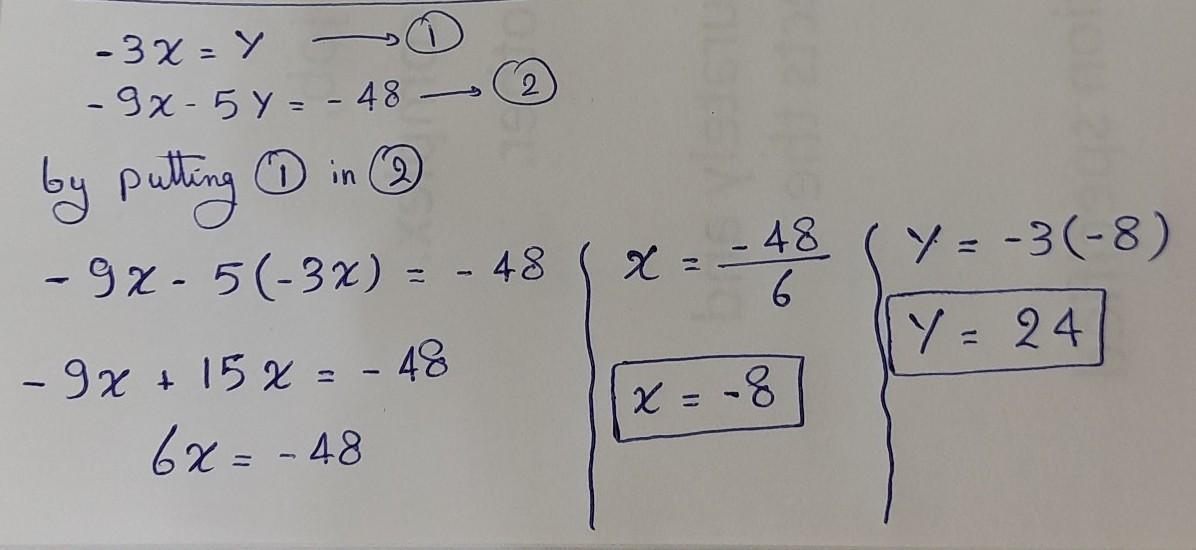 -3x = Y ⟶ ①
-9x - 5Y = -48 ⟶ ②
by putting ① in ②
-9x - 5(-3x) = -48
-9x + 15x = -48
6x = -48
x = -48/6
x = -8
Y = -3(-8)
Y = 24